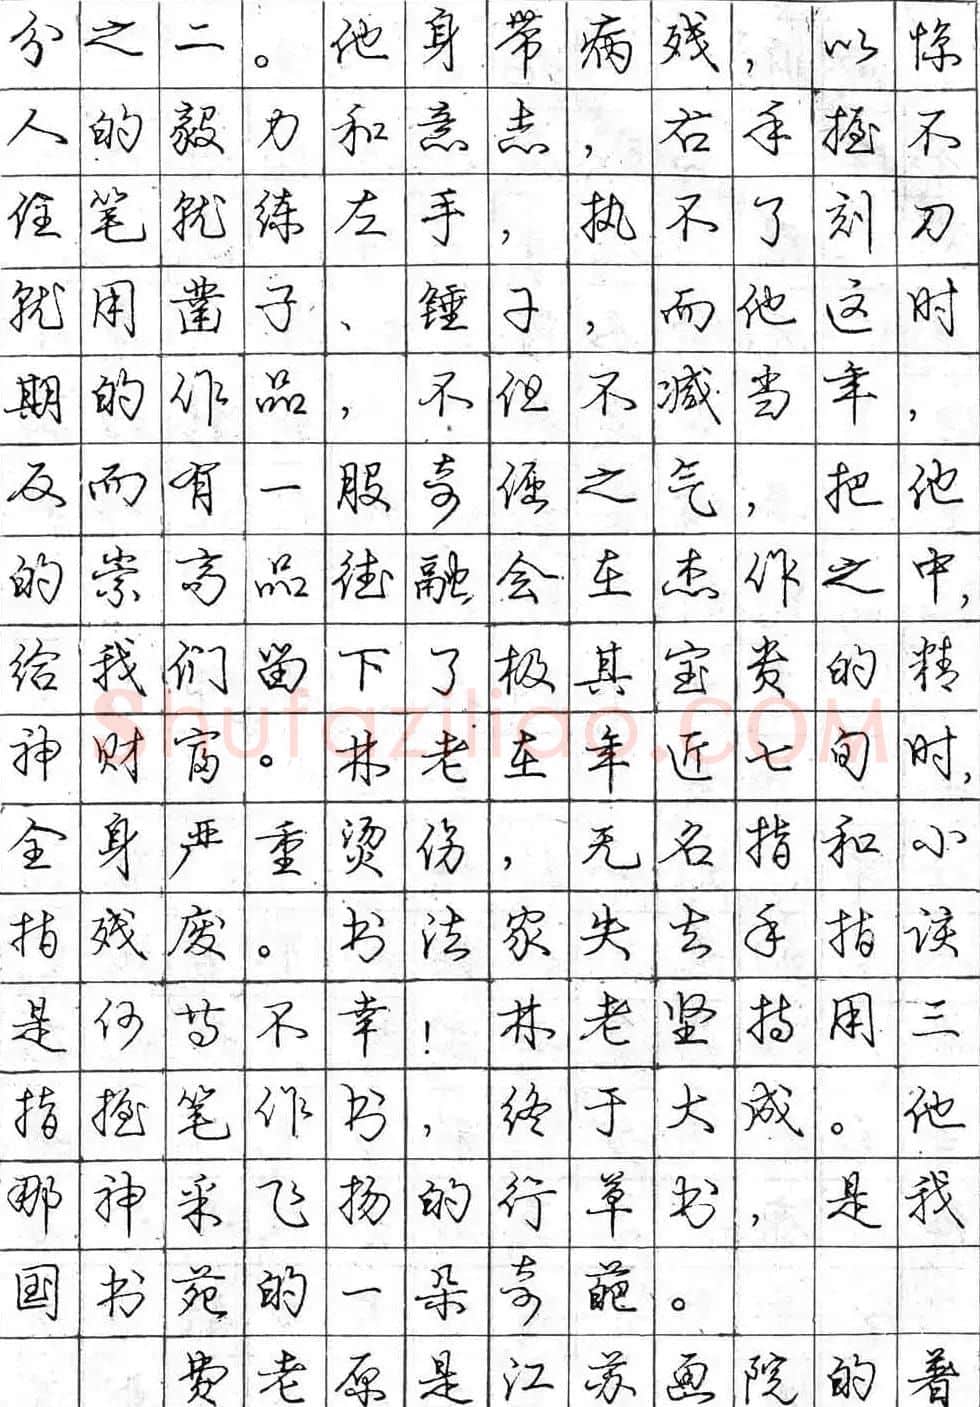 分之二。他身带病残，以惊
人的毅力和意志，右手握不
住笔就练左手，执不了刻刀
就用凿子、锤子，而他这时
期的作品，不但不减当年，
反而有一股奇倔之气，把他
的崇高品德融会在杰作之中，
给我们留下了极其宝贵的精
神财富。林老在年近七旬时，
全身严重烫伤，无名指和小
指残废。书法家失去手指该
是何等不幸！林老坚持用三
指握笔作书，终于大成。他
那神采飞扬的行草书，是我
国书苑的一朵奇葩。
费老原是江苏画院的著
Shufaziliao.COM